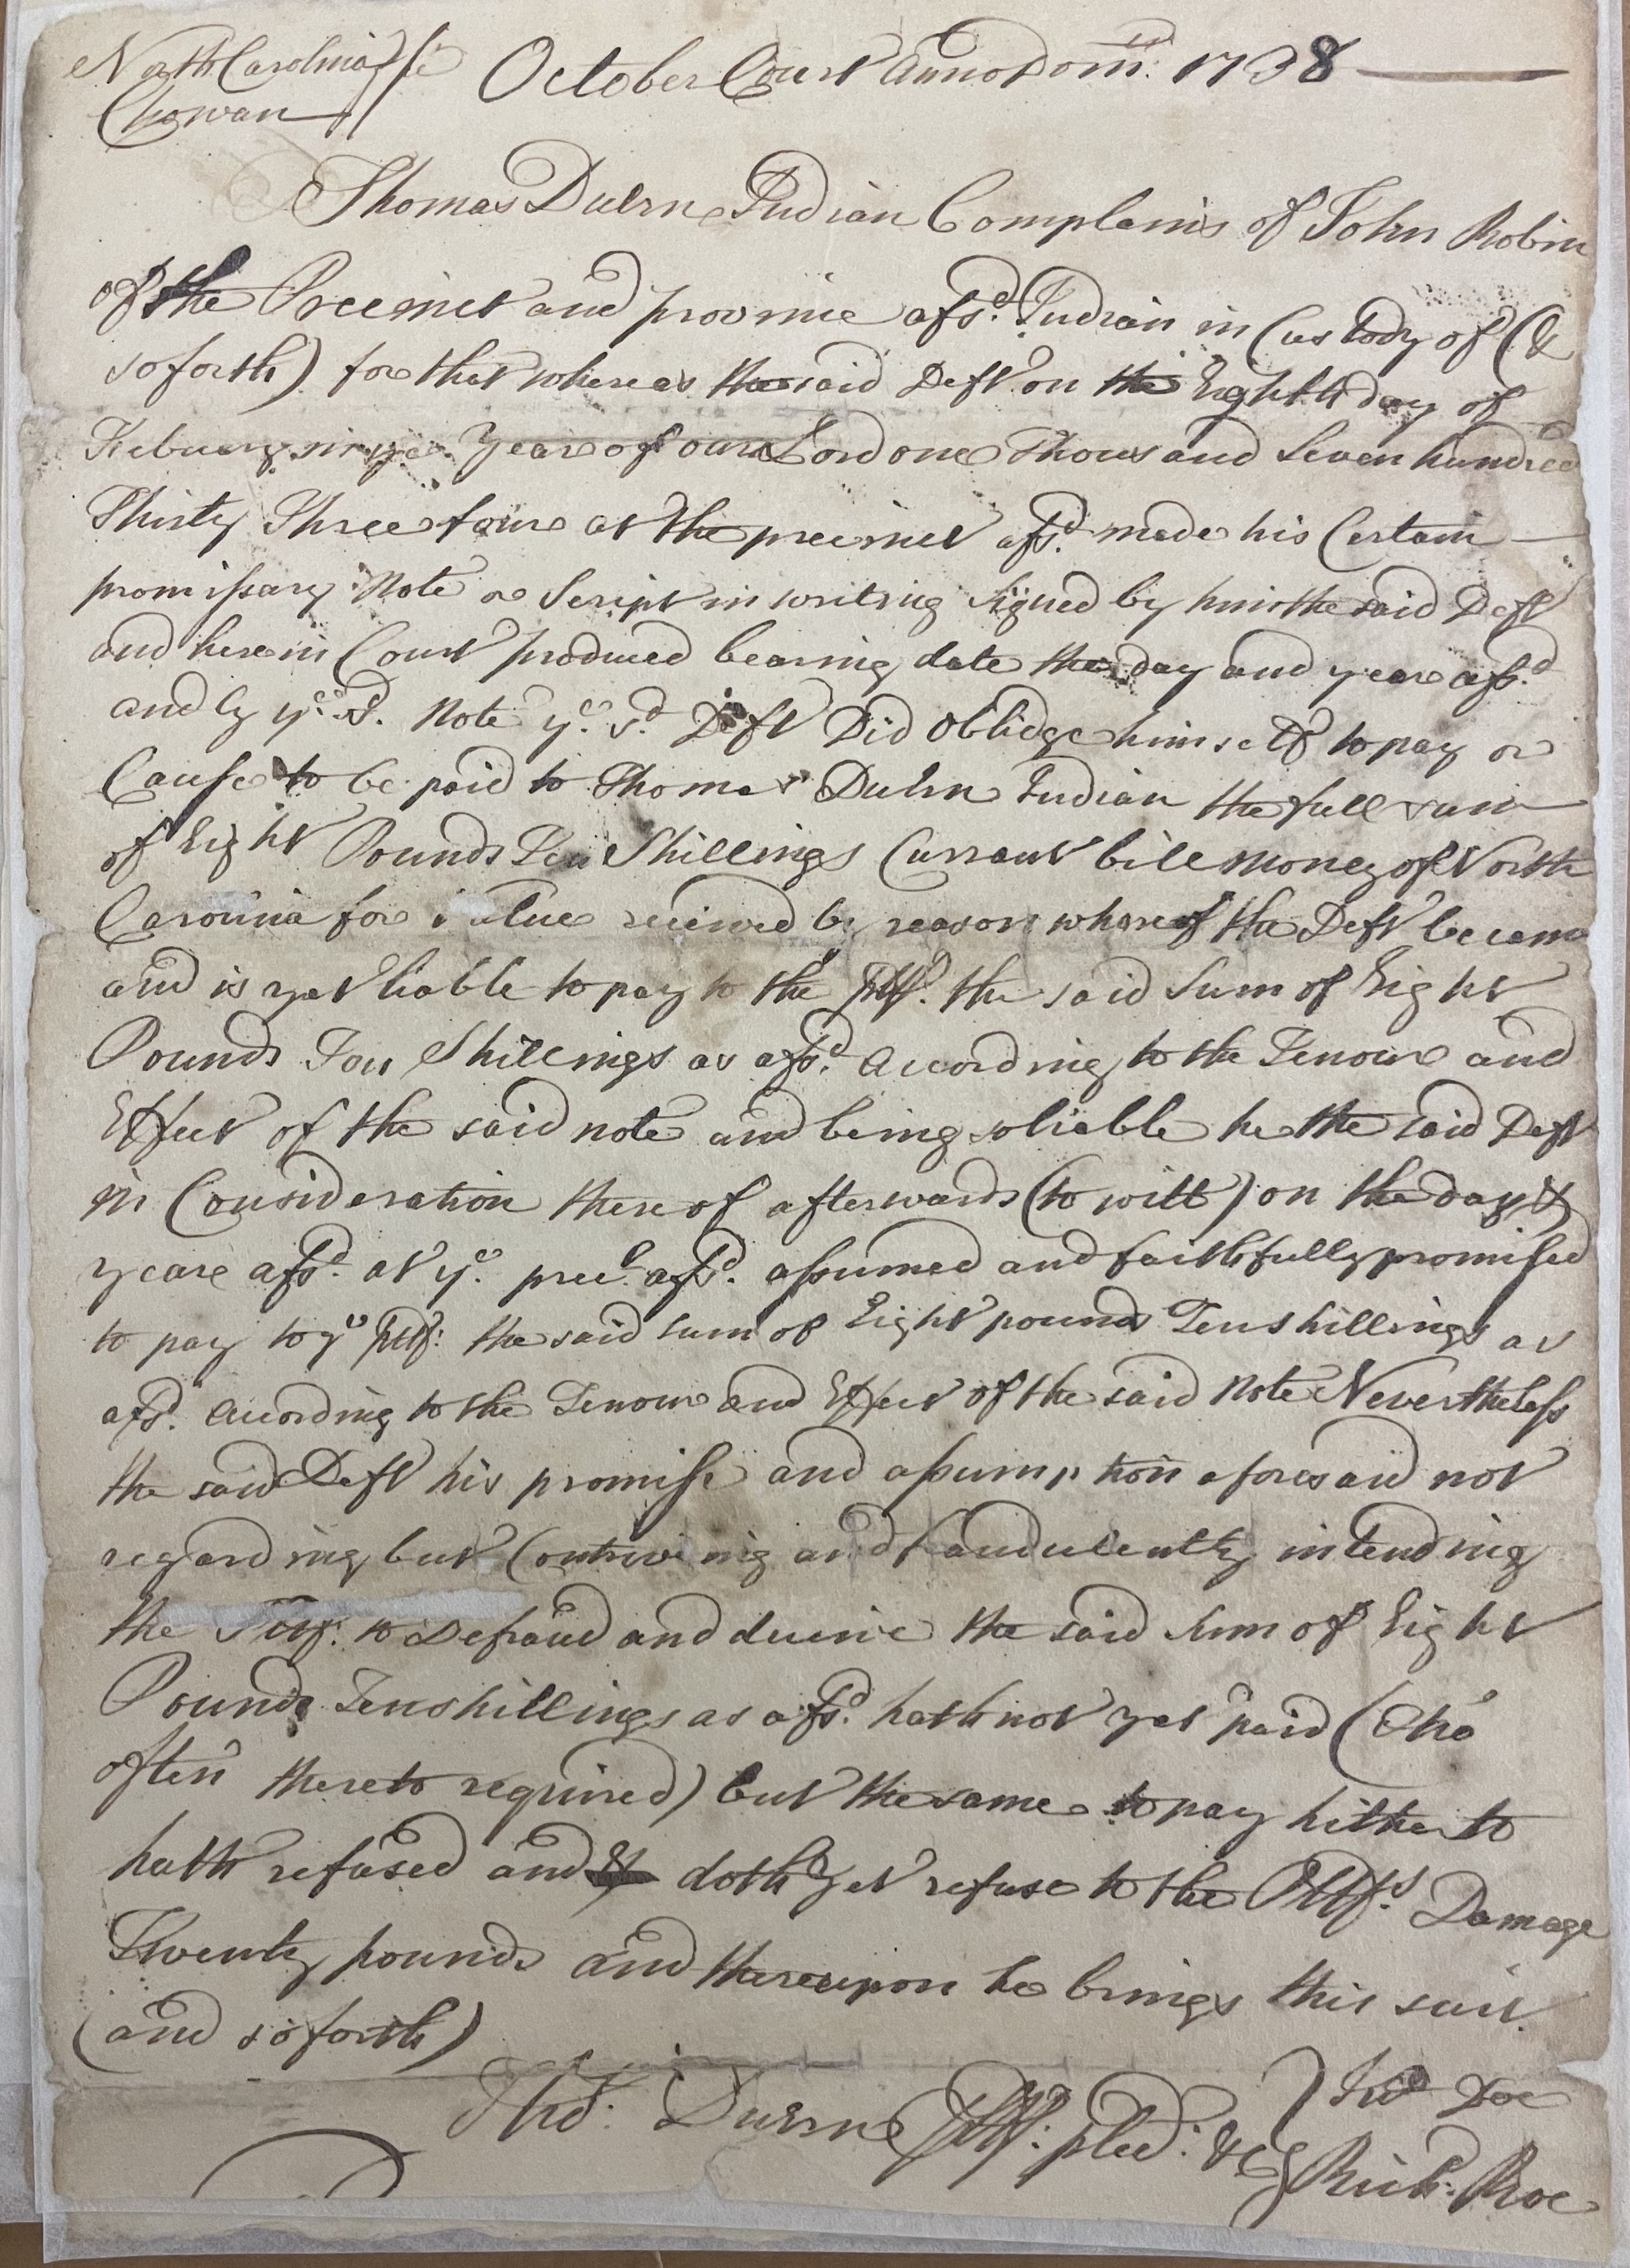 North Carolina) ss
Chowan
October Court Annoq Dom: 1738
Thomas Duern Indian Complains of John Robin
of the Precinct and province afsd. Indian in Custody of (&
soforth) for that whereas the said Deft on the Eighth day of
Febuary in ye Year of our Lord one Thousand Seven hundred
Thirty Three four at the precinct afsd. made his Certain
promissary Note or Script in writing Signed by him the said Deft
and here in Court produced bearing date the day and year afsd.
and by ye. sd. Note ye. sd. Deft Did Oblidge himself to pay or
Cause to be paid to Thomas Duern Indian the full sum
of Eight Pounds Ten Shillings Currant bill money of North
Carolina for value recieved by reason whareof the Deft became
and is yet liable to pay to the Pltf. the said Sum of Eight
Pounds Ten Shillings as afsd. According to the Tenour and
Effect of the said note and being soliable he the said Deft
in Consideration there of afterwards (to witt) on the day &
yeare afsd. at ye. prect. afsd. assumed and faithfully promised
to pay to ye Pltf: the said sum of Eight pounds Ten shillings as
afsd. Acording to the Tenour and Effect of the said Note Nevertheless
the said Deft his promise and assumption aforesaid not
regarding but Contriveing and fraudulently intending
the Pltf: to Defraud and deceive the said Sum of Eight
Pounds Ten shillings as afsd. hath not yet paid (Tho'
often thereto required) but the same to pay hitherto
hath refused and doth Yet refuse to the Pltfs. Damage
Twenty pounds and thereupon he brings this suit.
(and soforth)
Tho: Duern Pltf: pled: &c } Jno Doe
Rich: Roe